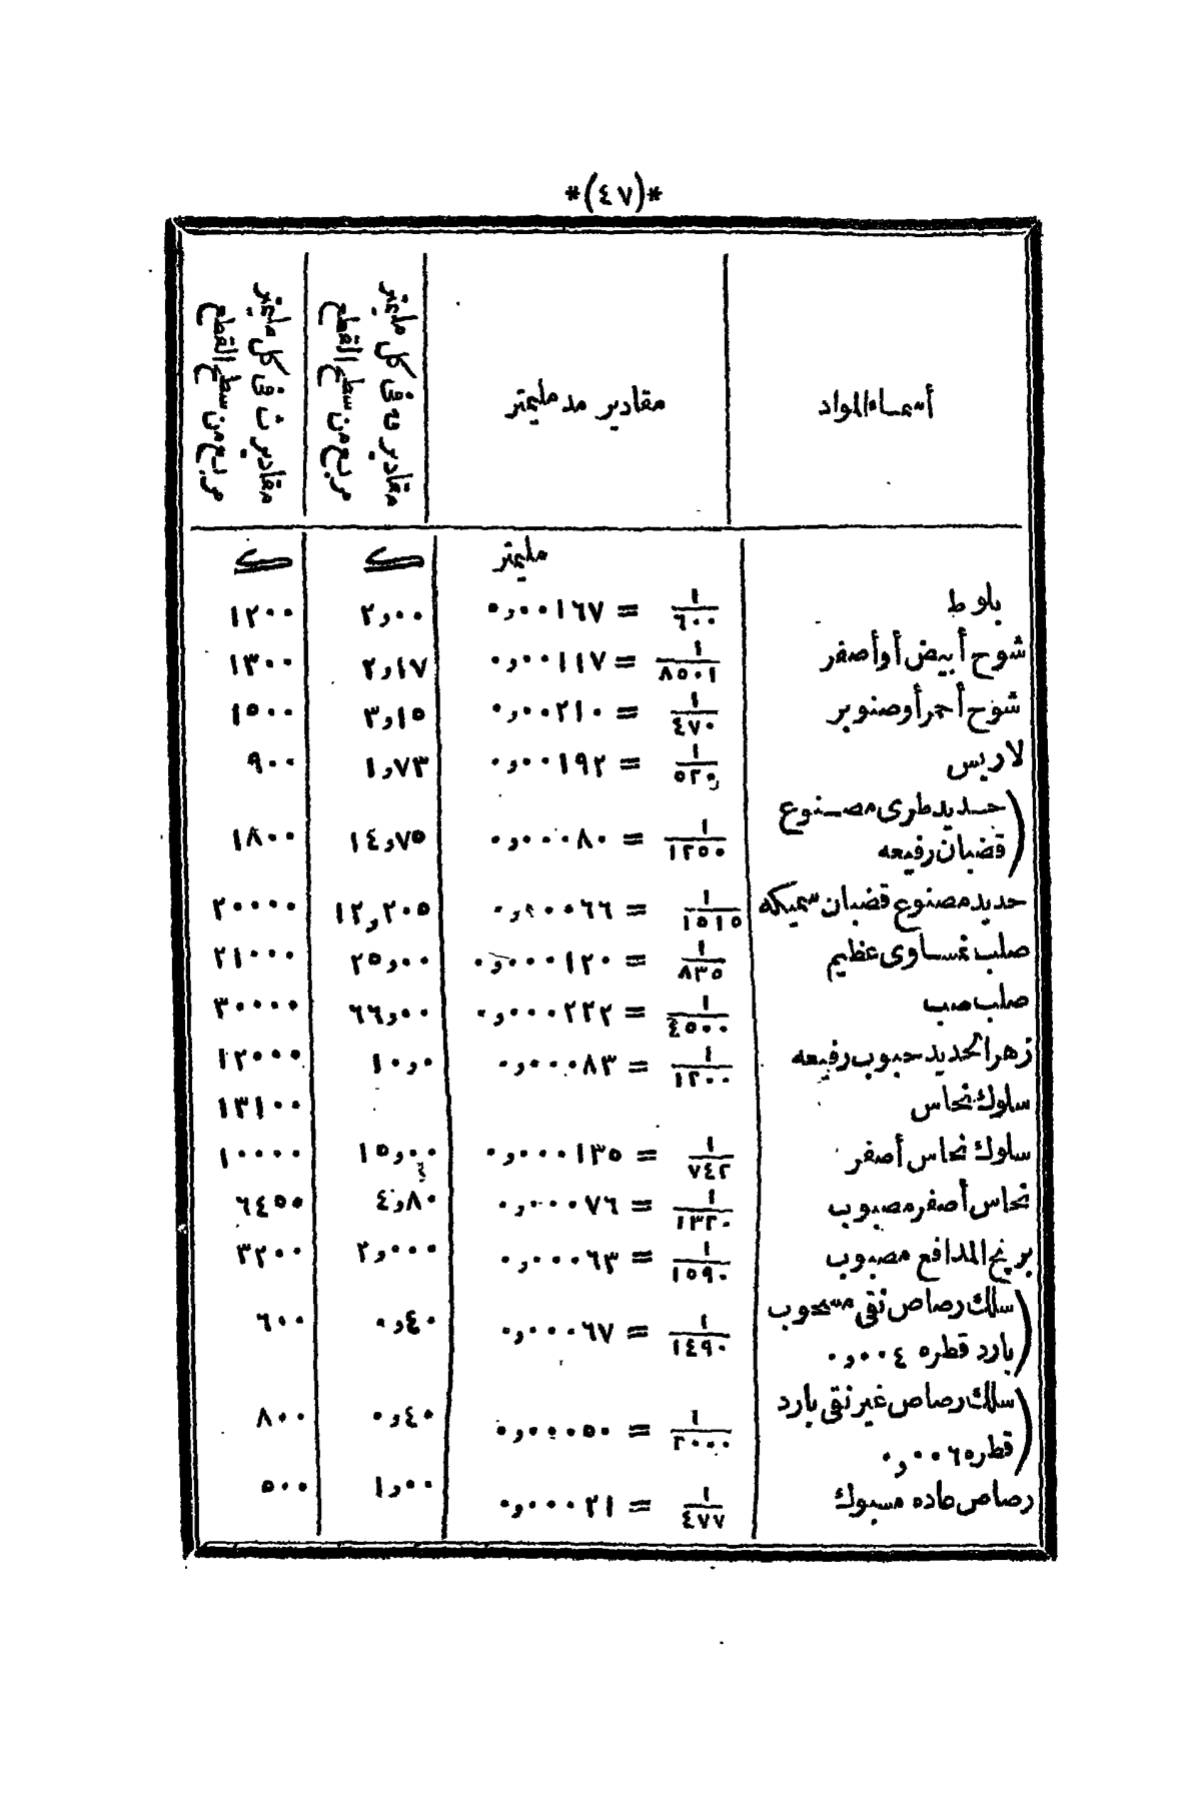 *(٤٧)*
أسماء المواد
مقادير مد مليمتر
مقادير ق فى كل مليمتر
مربع من سطح القطع
مقادير ث فى كل مليمتر
مربع من سطح القطع
مليمتر
بلوط ١/٦٠٠ = ٠,٠٠١٦٧ ٢,٠٠ ١٢٠٠
شوح أبيض أو أصفر ١/٨٥٠,١ = ٠,٠٠١١٧ ٢,١٧ ١٣٠٠
شوح أحمر أو صنوبر ١/٤٧٠ = ٠,٠٠٢١٠ ٣,١٥ ١٥٠٠
لاريس ١/٥٢٠ = ٠,٠٠١٩٢ ١,٧٣ ٩٠٠
حديد طرى مصنوع
قضبان رفيعه ١/١٢٥٠ = ٠,٠٠٠٨٠ ١٤,٧٥ ١٨٠٠
حديد مصنوع قضبان سميكه ١/١٥١٥ = ٠,٠٠٠٦٦ ١٢,٢٠٥ ٢٠٠٠٠
صلب نمساوى عظيم ١/٨٣٥ = ٠,٠٠٠١٢٠ ٢٥,٠٠ ٢١٠٠٠
صلب صب ١/٤٥٠٠ = ٠,٠٠٠٢٢٢ ٦٦,٠٠ ٣٠٠٠٠
زهر الحديد حبوب رفيعه ١/١٢٠٠ = ٠,٠٠٠٨٣ ١٠,٠ ١٢٠٠٠
سلوك نحاس ١٣١٠٠
سلوك نحاس أصفر ١/٧٤٢ = ٠,٠٠٠١٣٥ ١٥,٠٠ ١٠٠٠٠
نحاس أصفر مصبوب ١/١٣٢٠ = ٠,٠٠٠٧٦ ٤,٨٠ ٦٤٥٠
برنج المدافع مصبوب ١/١٥٩٠ = ٠,٠٠٠٦٣ ٢,٠٠٠ ٣٢٠٠
سلك رصاص نقى مسحوب
بارد قطره ٠,٠٠٤ ١/١٤٩٠ = ٠,٠٠٠٦٧ ٠,٤٠ ٦٠٠
سلك رصاص غير نقى بارد
قطره ٠,٠٠٦ ١/٢٠٠٠ = ٠,٠٠٠٥٠ ٠,٤٠ ٨٠٠
رصاص ماده مسبوك ١/٤٧٧ = ٠,٠٠٠٢١ ١,٠٠ ٥٠٠